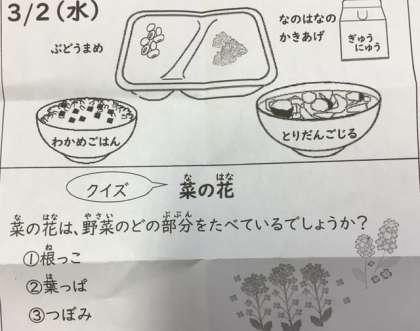 3/2(水)
ぶどうまめ
なのはなの
かきあげ
ぎゅう
にゅう
わかめごはん
とりだんごじる
クイズ
菜の花
な はな
菜の花は、野菜のどの部分をたべているでしょうか?
な はな やさい ぶぶん
①根っこ
ね
②葉っぱ
は
③つぼみ